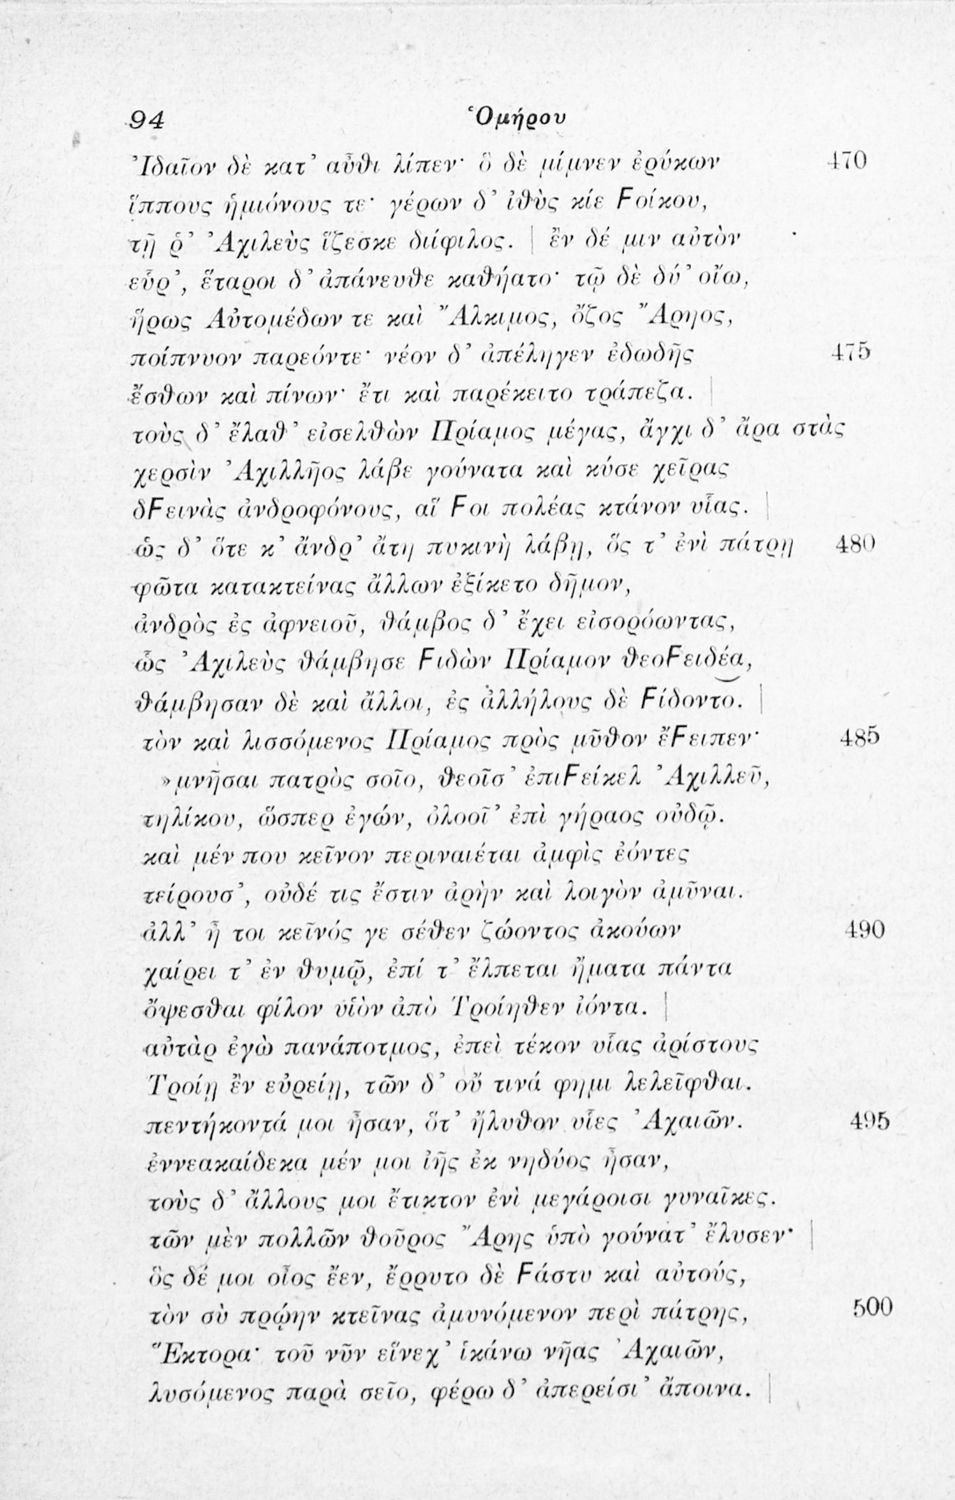 94 Ὁμήρου
Ἰδαῖον δὲ κατ’ αὖθι λίπεν· ὃ δὲ μίμνεν ἐρύκων 470
ἵππους ἡμιόνους τε· γέρων δ’ ἰθὺς κίε Ϝοίκου,
τῇ ῥ’ Ἀχιλεὺς ἵζεσκε διίφιλος. | ἒν δέ μιν αὐτὸν
εὗρ’, ἕταροι δ’ ἀπάνευθε καθήατο· τῷ δὲ δύ’ οἴω,
ἥρως Αὐτομέδων τε καὶ Ἄλκιμος, ὄζος Ἄρηος,
ποίπνυον παρεόντε· νέον δ’ ἀπέληγεν ἐδωδῆς 475
ἔσθων καὶ πίνων· ἔτι καὶ παρέκειτο τράπεζα. |
τοὺς δ’ ἔλαθ’ εἰσελθὼν Πρίαμος μέγας, ἄγχι δ’ ἄρα στὰς
χερσὶν Ἀχιλλῆος λάβε γούνατα καὶ κύσε χεῖρας
δϜεινὰς ἀνδροφόνους, αἵ Ϝοι πολέας κτάνον υἷας. |
ὡς δ’ ὅτε κ’ ἄνδρ’ ἄτη πυκινὴ λάβῃ, ὅς τ’ ἐνὶ πάτρῃ 480
φῶτα κατακτείνας ἄλλων ἐξίκετο δῆμον,
ἀνδρὸς ἐς ἀφνειοῦ, θάμβος δ’ ἔχει εἰσορόωντας,
ὧς Ἀχιλεὺς θάμβησε Ϝιδὼν Πρίαμον θεοϜειδέα,
θάμβησαν δὲ καὶ ἄλλοι, ἐς ἀλλήλους δὲ Ϝίδοντο. |
τὸν καὶ λισσόμενος Πρίαμος πρὸς μῦθον ἔϜειπεν· 485
»μνῆσαι πατρὸς σοῖο, θεοῖσ’ ἐπιϜείκελ’ Ἀχιλλεῦ,
τηλίκου, ὥσπερ ἐγών, ὀλοοῖ’ ἐπὶ γήραος οὐδῷ.
καὶ μέν που κεῖνον περιναιέται ἀμφὶς ἐόντες
τείρουσ’, οὐδέ τις ἔστιν ἀρὴν καὶ λοιγὸν ἀμῦναι.
ἀλλ’ ἦ τοι κεῖνός γε σέθεν ζώοντος ἀκούων 490
χαίρει τ’ ἐν θυμῷ, ἐπί τ’ ἔλπεται ἤματα πάντα
ὄψεσθαι φίλον υἱὸν ἀπὸ Τροίηθεν ἰόντα. |
αὐτὰρ ἐγὼ πανάποτμος, ἐπεὶ τέκον υἷας ἀρίστους
Τροίῃ ἒν εὐρείῃ, τῶν δ’ οὔ τινά φημι λελεῖφθαι.
πεντήκοντά μοι ἦσαν, ὅτ’ ἤλυθον υἷες Ἀχαιῶν. 495
ἐννεακαίδεκα μέν μοι ἰῆς ἐκ νηδύος ἦσαν,
τοὺς δ’ ἄλλους μοι ἔτικτον ἐνὶ μεγάροισι γυναῖκες.
τῶν μὲν πολλῶν θοῦρος Ἄρης ὑπὸ γούνατ’ ἔλυσεν· |
ὃς δέ μοι οἶος ἔεν, ἔρρυτο δὲ Ϝάστυ καὶ αὐτούς,
τὸν σὺ πρῴην κτεῖνας ἀμυνόμενον περὶ πάτρης, 500
Ἕκτορα· τοῦ νῦν εἵνεχ’ ἱκάνω νῆας Ἀχαιῶν,
λυσόμενος παρὰ σεῖο, φέρω δ’ ἀπερείσι’ ἄποινα. |